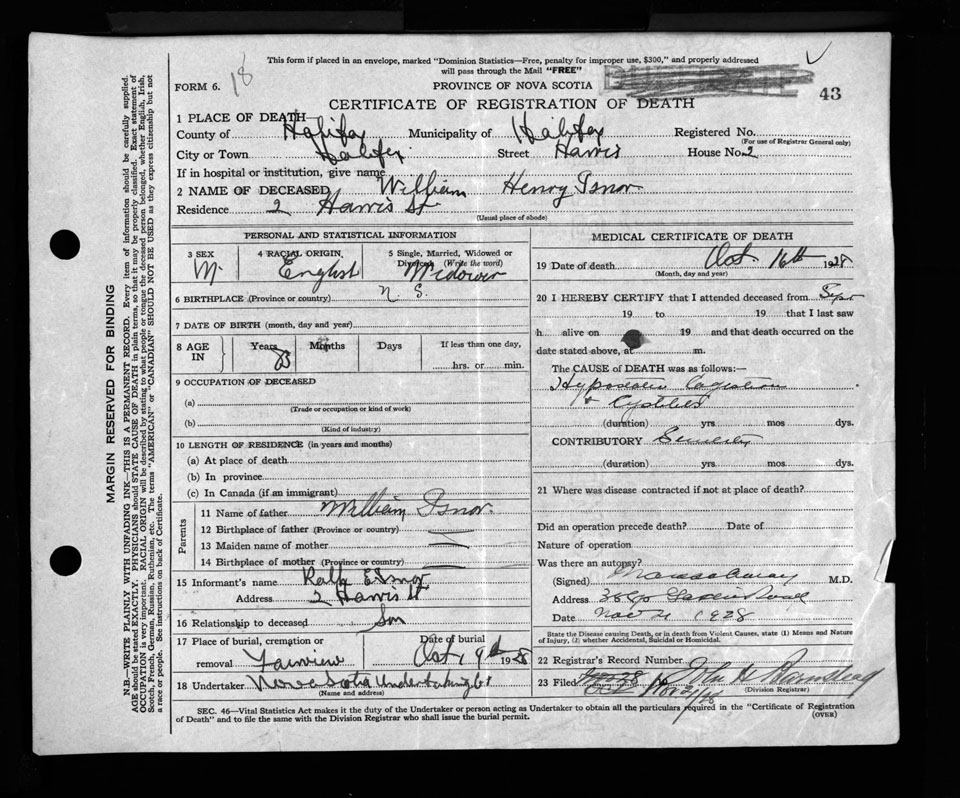 This form if placed in an envelope, marked "Dominion Statistics—Free, penalty for improper use, $300," and properly addressed
will pass through the Mail "FREE"
FORM 6. 18
PROVINCE OF NOVA SCOTIA
43
CERTIFICATE OF REGISTRATION OF DEATH
1 PLACE OF DEATH—
County of Halifax Municipality of Halifax Registered No.
(For use of Registrar General only)
City or Town Halifax Street Harris House No. 2
If in hospital or institution, give name
2 NAME OF DECEASED William Henry Isnor
Residence 2 Harris St
(Usual place of abode)
PERSONAL AND STATISTICAL INFORMATION
3 SEX 4 RACIAL ORIGIN 5 Single, Married, Widowed or
Divorced (Write the word)
M. English Widower
6 BIRTHPLACE (Province or country) N S.
7 DATE OF BIRTH (month, day and year)
8 AGE IN Years Months Days If less than one day,
hrs. or min.
9 OCCUPATION OF DECEASED
(a)
(Trade or occupation or kind of work)
(b)
(Kind of industry)
10 LENGTH OF RESIDENCE (in years and months)
(a) At place of death
(b) In province
(c) In Canada (if an immigrant)
Parents
11 Name of father William Isnor
12 Birthplace of father (Province or country)
13 Maiden name of mother
14 Birthplace of mother (Province or country)
15 Informant's name Ralph E Isnor
Address 2 Harris St
16 Relationship to deceased Son
17 Place of burial, cremation or Date of burial
removal Fairview Oct 19th 1928
18 Undertaker Nova Scotia Undertaking Co
(Name and address)
MEDICAL CERTIFICATE OF DEATH
19 Date of death Oct. 16th 1928
(Month, day and year)
20 I HEREBY CERTIFY that I attended deceased from Sept
19 to 19 that I last saw
h alive on 19 and that death occurred on the
date stated above, at m.
The CAUSE of DEATH was as follows:—
Hypostatic Congestion
& Cystitis
(duration) yrs mos dys.
CONTRIBUTORY Senility
(duration) yrs mos dys.
21 Where was disease contracted if not at place of death?
Did an operation precede death? Date of
Nature of operation
Was there an autopsy?
(Signed) M.D.
Address
Date Nov 21 1928
State the Disease causing Death, or in death from Violent Causes, state (1) Means and Nature
of Injury, (2) whether Accidental, Suicidal or Homicidal.
22 Registrar's Record Number
23 Filed Nov 21/28 John H
(Division Registrar)
SEC. 46—Vital Statistics Act makes it the duty of the Undertaker or person acting as Undertaker to obtain all the particulars required in the "Certificate of Registration
of Death" and to file the same with the Division Registrar who shall issue the burial permit. (OVER)
MARGIN RESERVED FOR BINDING
N.B.—WRITE PLAINLY WITH UNFADING INK—THIS IS A PERMANENT RECORD. Every item of information should be carefully supplied.
AGE should be stated EXACTLY. PHYSICIANS should STATE CAUSE OF DEATH in plain terms, so that it may be properly classified. Exact statement of
OCCUPATION is very important. RACIAL ORIGIN will be described by stating to what people or tongue the deceased person belonged, whether English, Irish,
Scotch, French, German, Russian, Ruthenian, etc. The terms "AMERICAN" or "CANADIAN" SHOULD NOT BE USED as they express citizenship but not
a race or people. See instructions on back of Certificate.